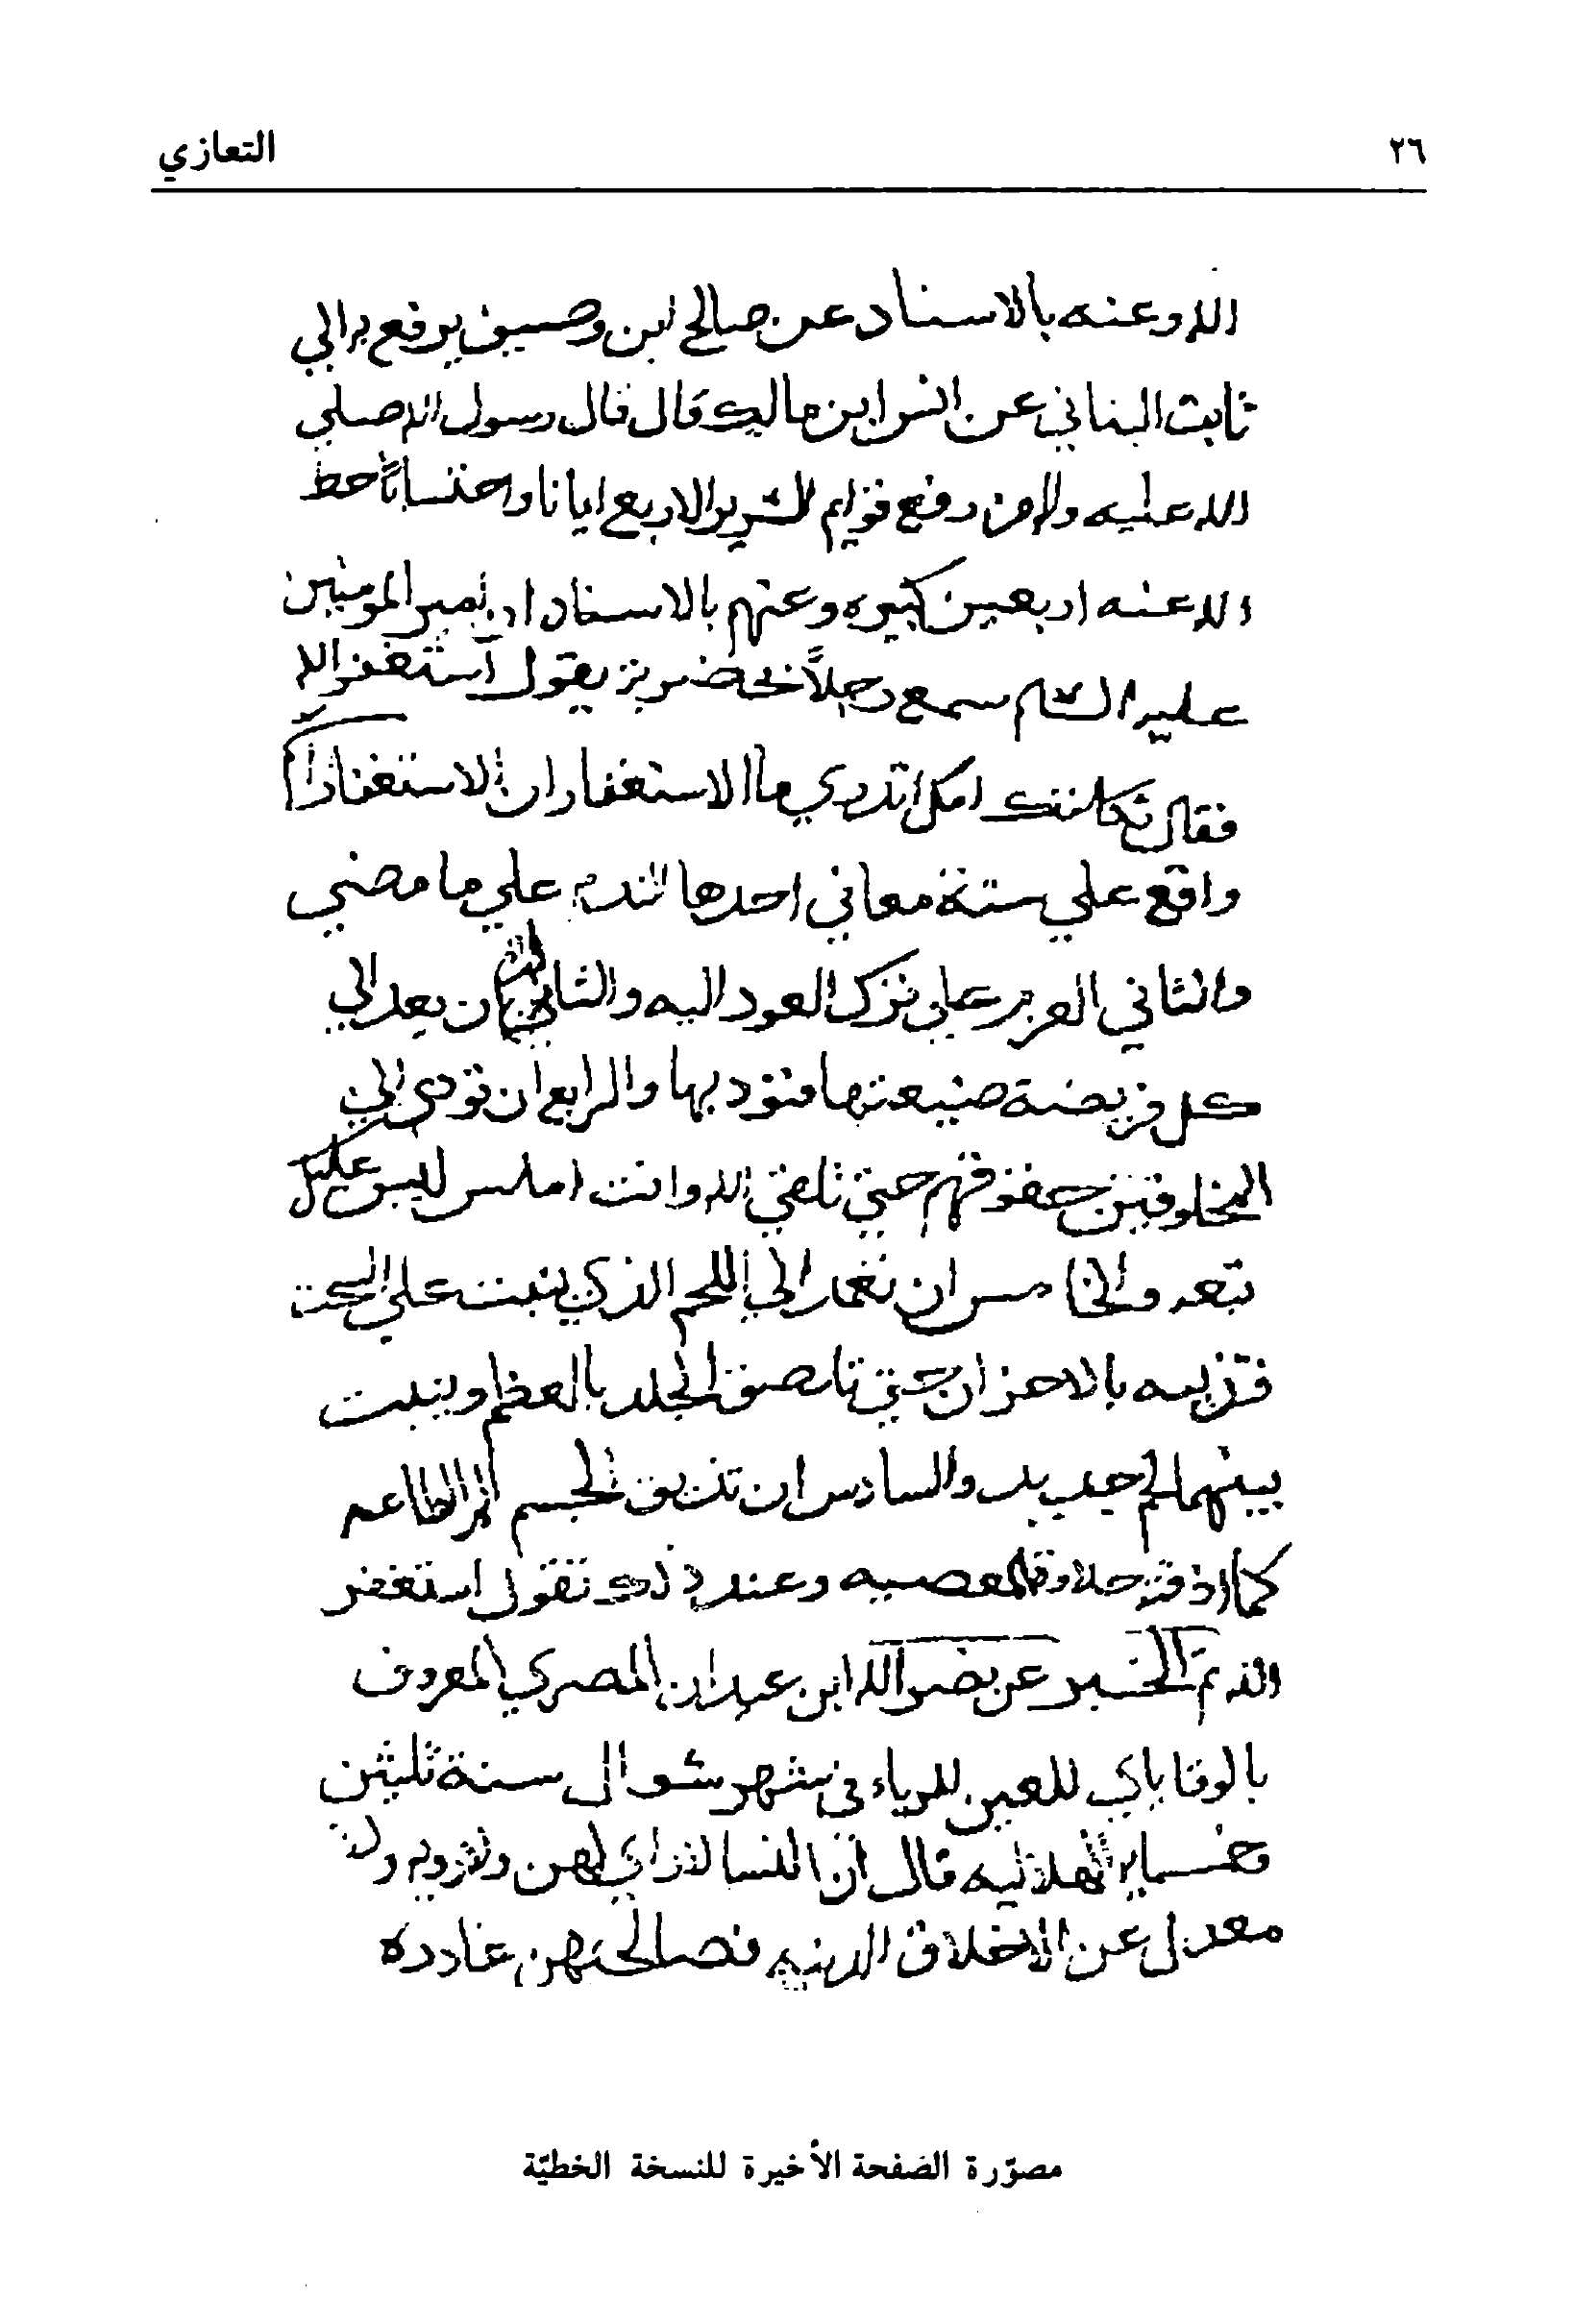 ٢٦ التعازي
الله وعنه بالاسناد عن صالح ابن وصيف يرفع به الي
ثابت البناني عن انس ابن مالك قال قال رسول الله صلي
الله عليه وله من رفع قوايم السرير الاربع ايمانا واحتساباً حط
الله عنه اربعين كبيره وعنهم بالاسناد ان امير المومنين
عليه السلام سمع رجلاً بحضرته يقول استغفر الله
فقال ثكلتك امك اتدري ما الاستغفار ان الاستغفار
واقع علي ستة معاني احدها الندم علي ما مضي
والثاني العزم علي ترك العود اليه والثالث ان يعد الي
كل فريضة ضيعتها فتؤديها والرابع ان تؤدي الي
المخلوقين حقوقهم حتي تلقي الله وانت املس ليس عليك
تبعه والخامس ان تعمد الي اللحم الذي ينبت علي السحت
فتذيبه بالاحزان حتي تلصق الجلد بالعظم وينبت
بينهما لحم جديد والسادس ان تذيق الجسم الم الطاعه
كما اذقته حلاوة المعصيه وعند ذلك تقول استغفر
الله تم الخبر عن نصر الله ابن عبد الله المصري المعروف
بالوفا في شهر شوال سنة ثلثين
وخمسمايه الهلاليه قال ان النسا
معدل عن الاخلاق الدينيه فصالحتهن غادره
مصوّرة الصفحة الأخيرة للنسخة الخطيّة